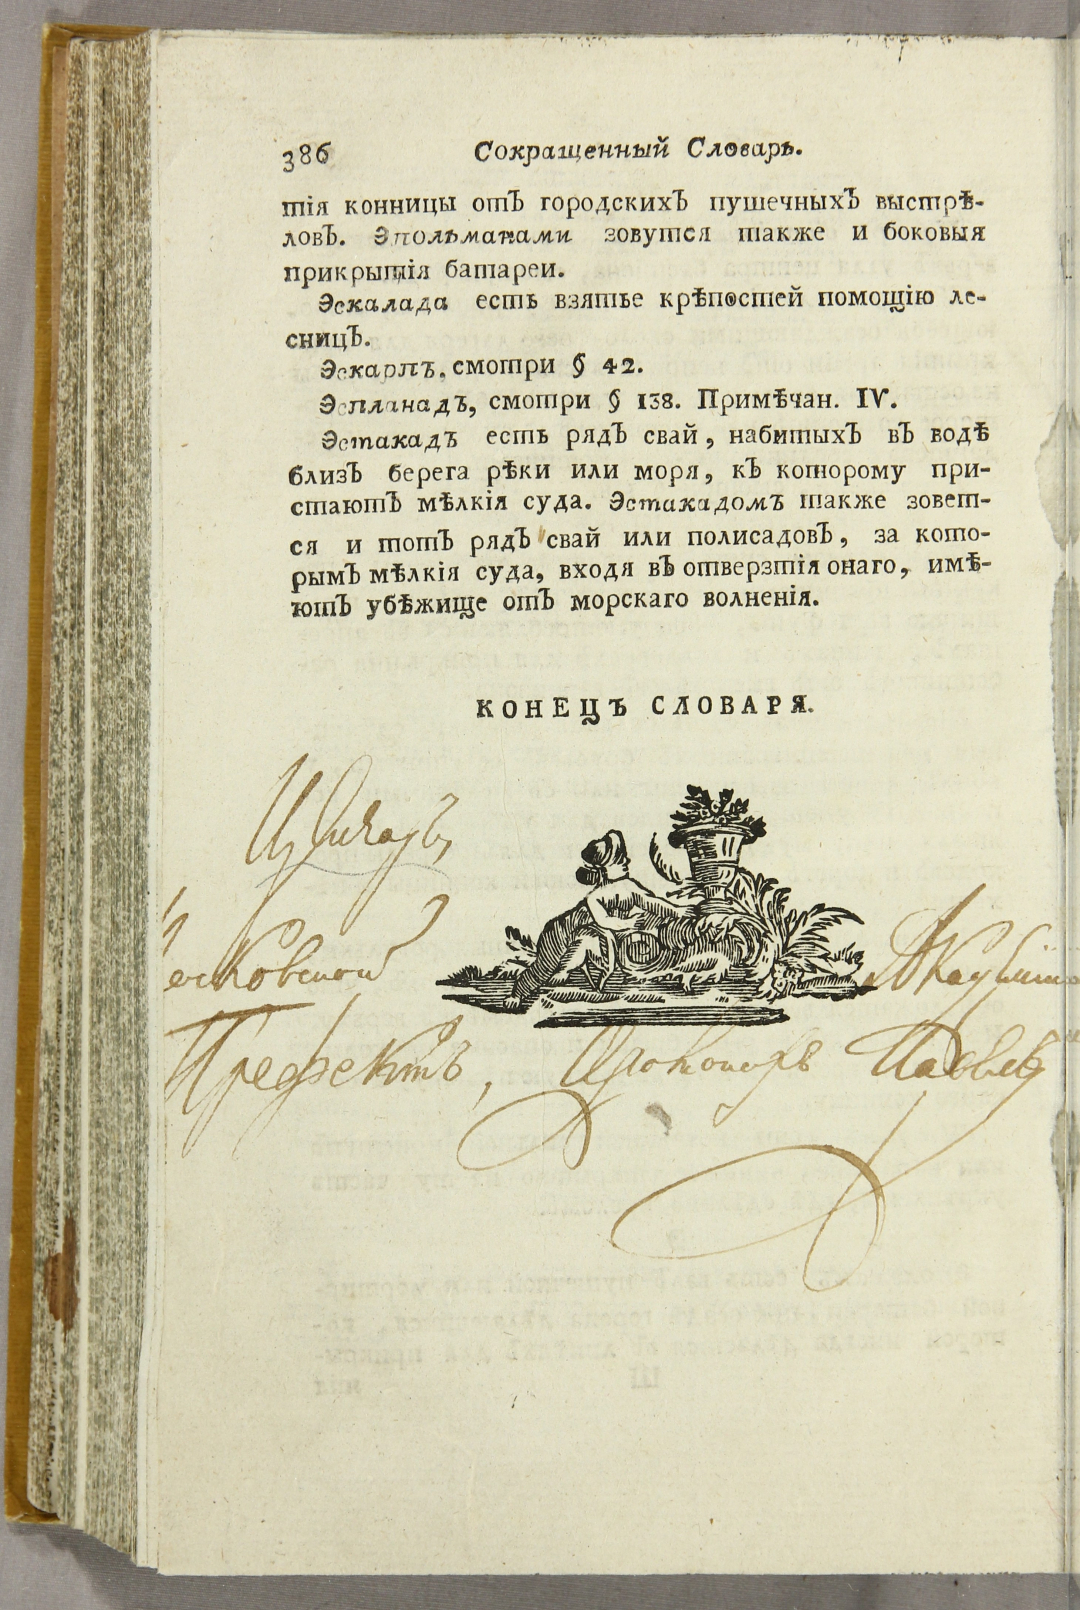 386 Сокращенный Словарь.
тія конницы отЪ городскихЪ пушечныхЪ выстрѣ-
ловЪ. Эпольманами зовутся также и боковыя
прикрытія батареи.
Эскалада есть взятье крѣпостей помощію ле-
сницЪ.
ЭскарпЪ, смотри § 42.
ЭспланадЪ, смотри § 138. Примѣчан. IV.
ЭстакадЪ есть рядЪ свай, набитыхЪ вЪ водѣ
близЪ берега рѣки или моря, кЪ которому при-
стаютЪ мѣлкія суда. ЭстакадомЪ также зовет-
ся и тотЪ рядЪ свай или полисадовЪ, за кото-
рымЪ мѣлкія суда, входя вЪ отверзтія онаго, имѣ-
ютЪ убѣжище отЪ морскаго волненія.
КОНЕЦЪ СЛОВАРЯ.
Префектъ, Прокопорѣ